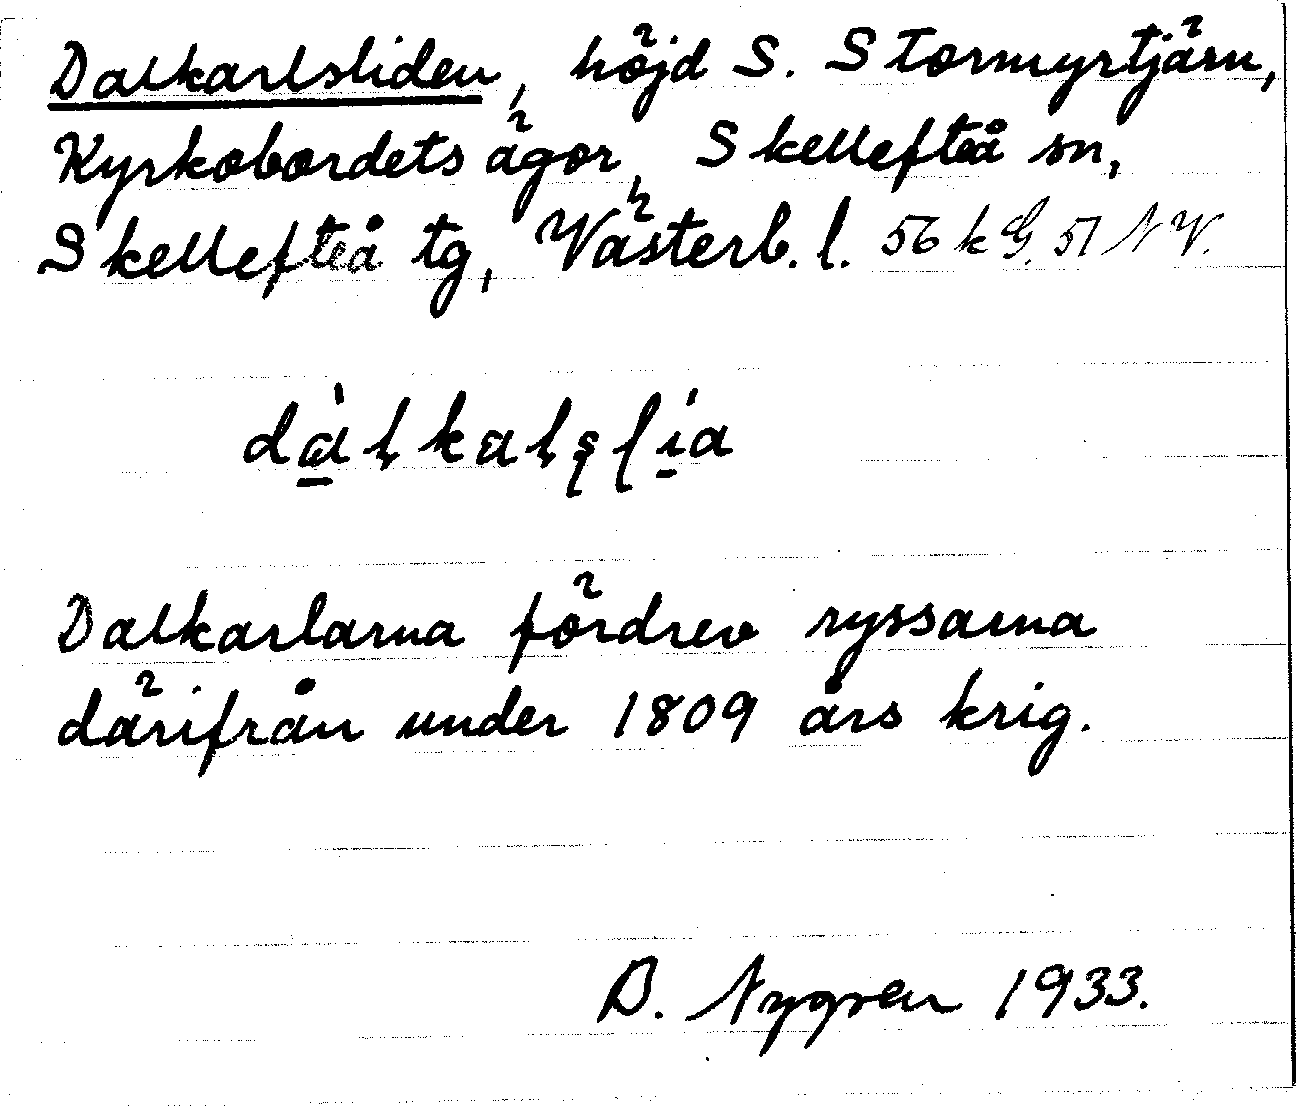 Dalkarlsliden, höjd S. Stormyrtjärn,
Kyrkobordets ägor, Skellefteå sn,
Skellefteå tg, Västerb. l. 56 k G. 51 NV.
Dalkarlarna fördrev ryssarna
därifrån under 1809 års krig.
B. Nygren 1933.